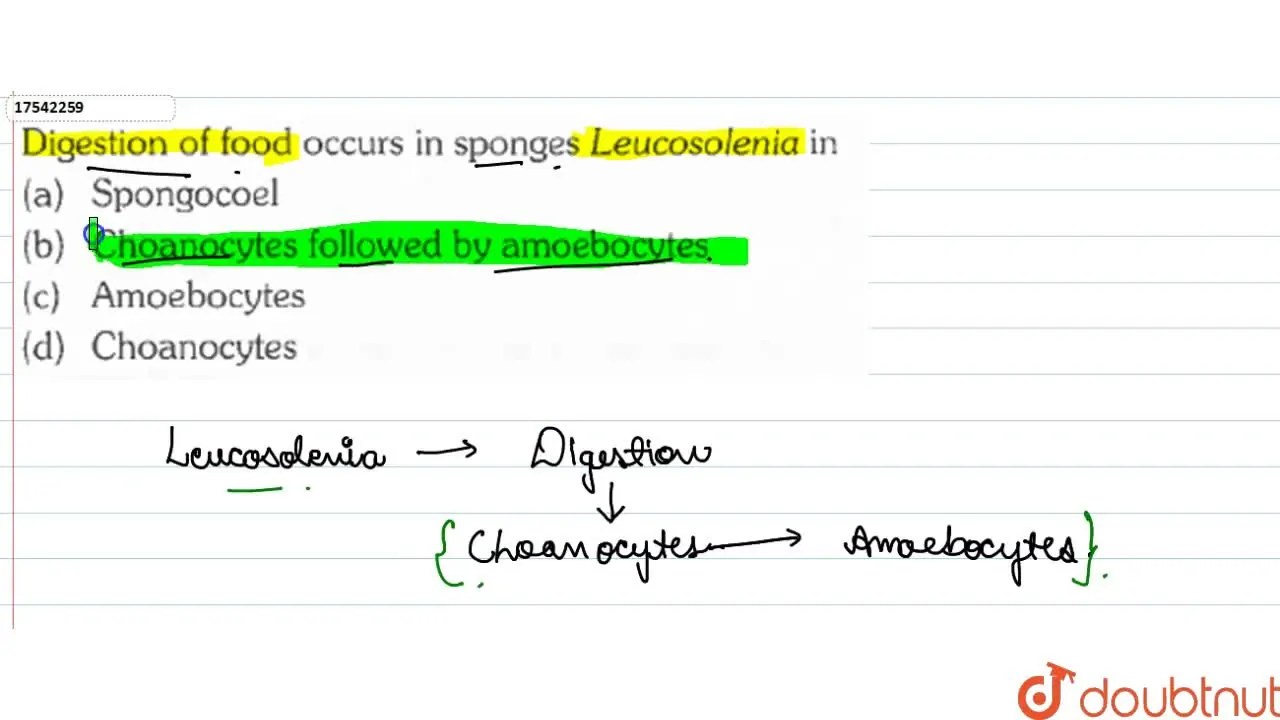 17542259
Digestion of food occurs in sponges Leucosolenia in
(a) Spongocoel
(b) Choanocytes followed by amoebocytes.
(c) Amoebocytes
(d) Choanocytes
Leucosolenia → Digestion
↓
{Choanocytes → Amoebocytes}.
doubtnut